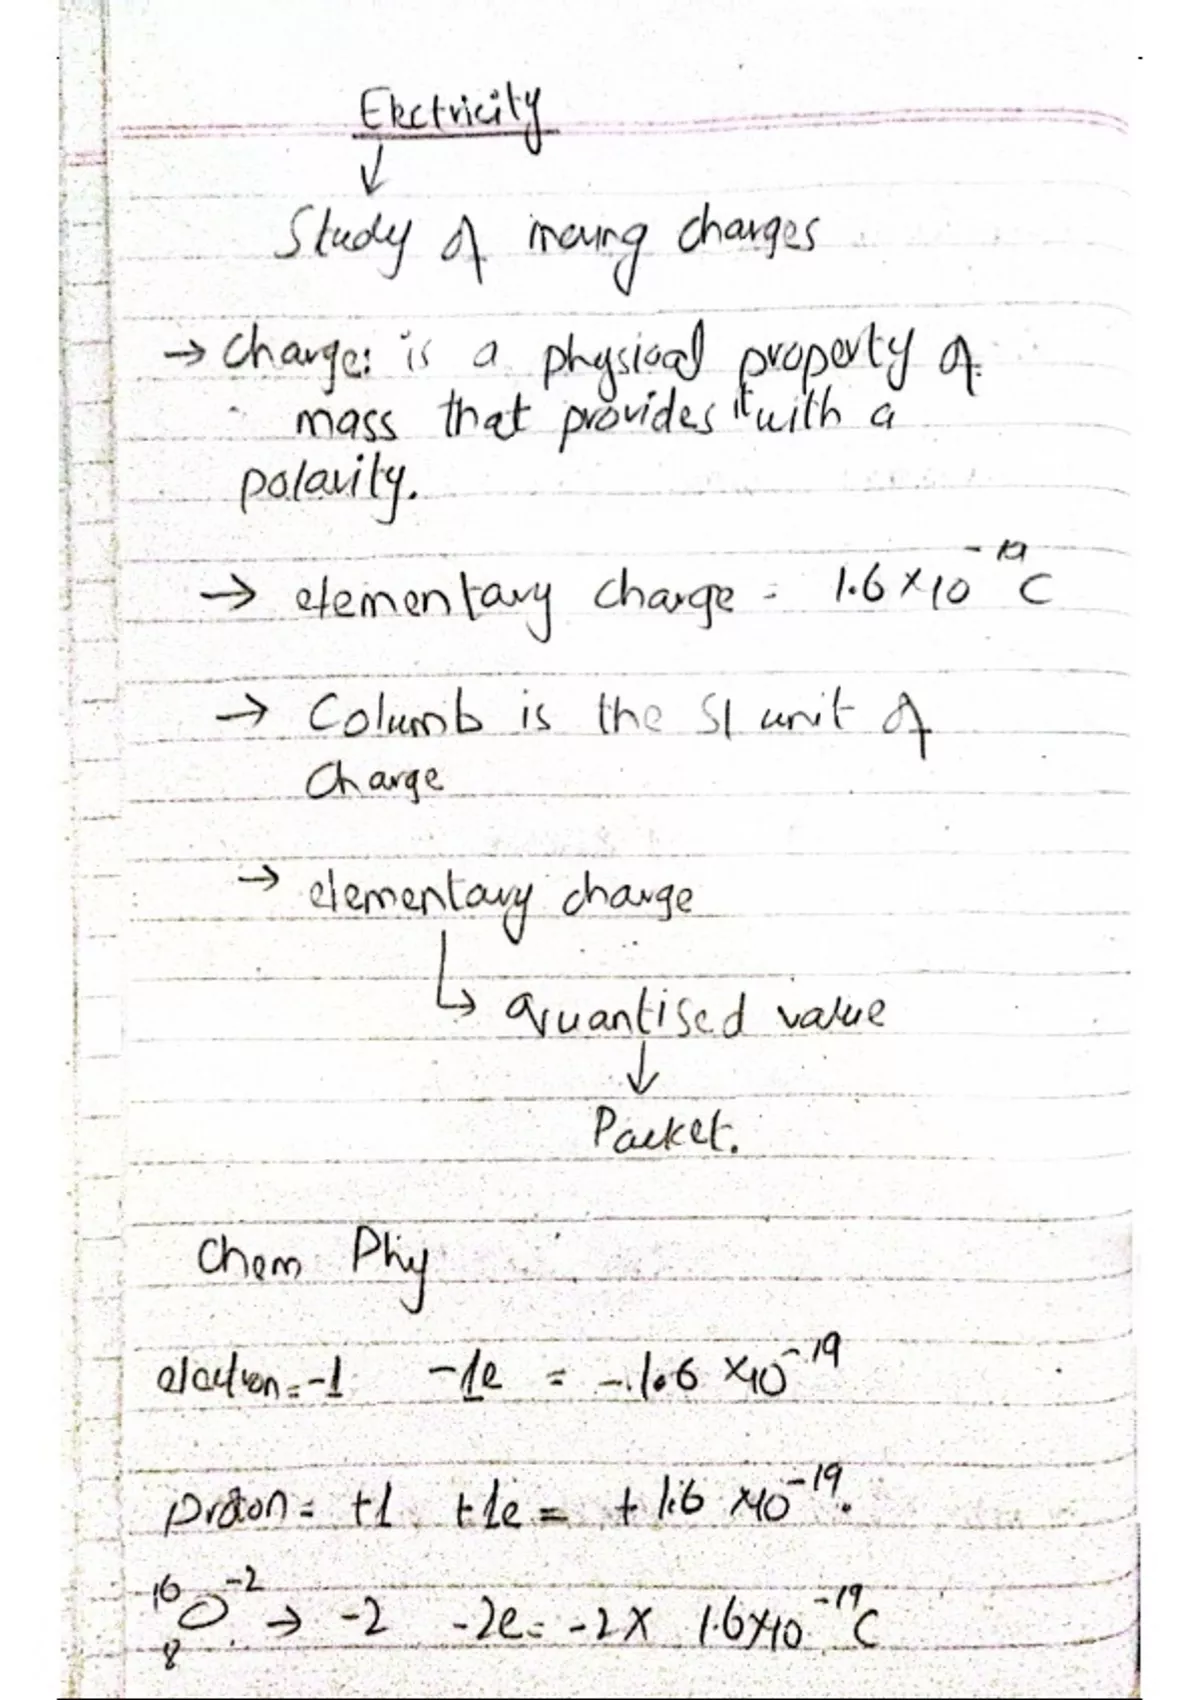 Electricity
↓
Study of moving charges
→ Charge: is a physical property of
mass that provides it with a
polarity.
→ elementary charge = 1.6 × 10⁻¹⁹ C
→ Columb is the SI unit of
Charge
→ elementary charge
↳ quantised value
↓
Packet.
Chem Phy
electron = -1 -1e = -1.6 ×10⁻¹⁹
proton = +1 +1e = +1.6 ×10⁻¹⁹.
¹⁶₈O⁻² → -2 -2e = -2 × 1.6×10⁻¹⁹C